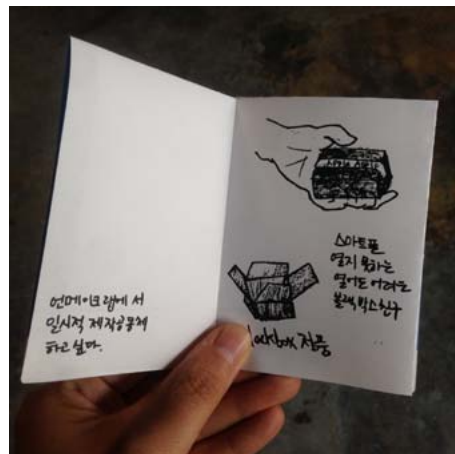 언메이크랩에서
일시적 제작공동체
하고 싶다.
스마트폰
열지 못하는
열어도 어려운
블랙박스 친구
box 점풍